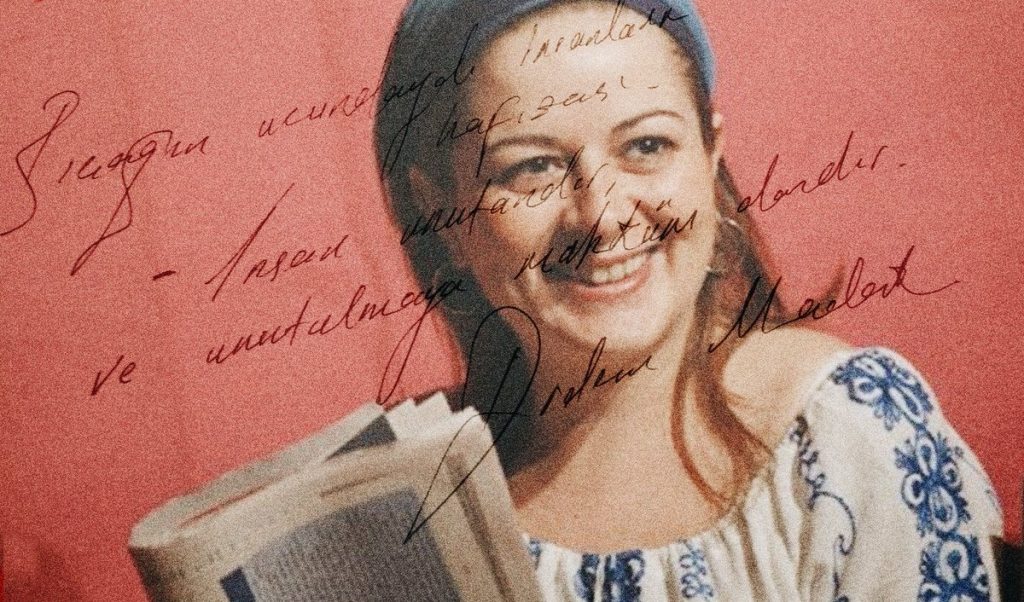 Bıçağın ucundaydı insanların
hafızası.
- İnsan unutandır,
ve unutulmaya mahkûm olandır.
Didem Madak